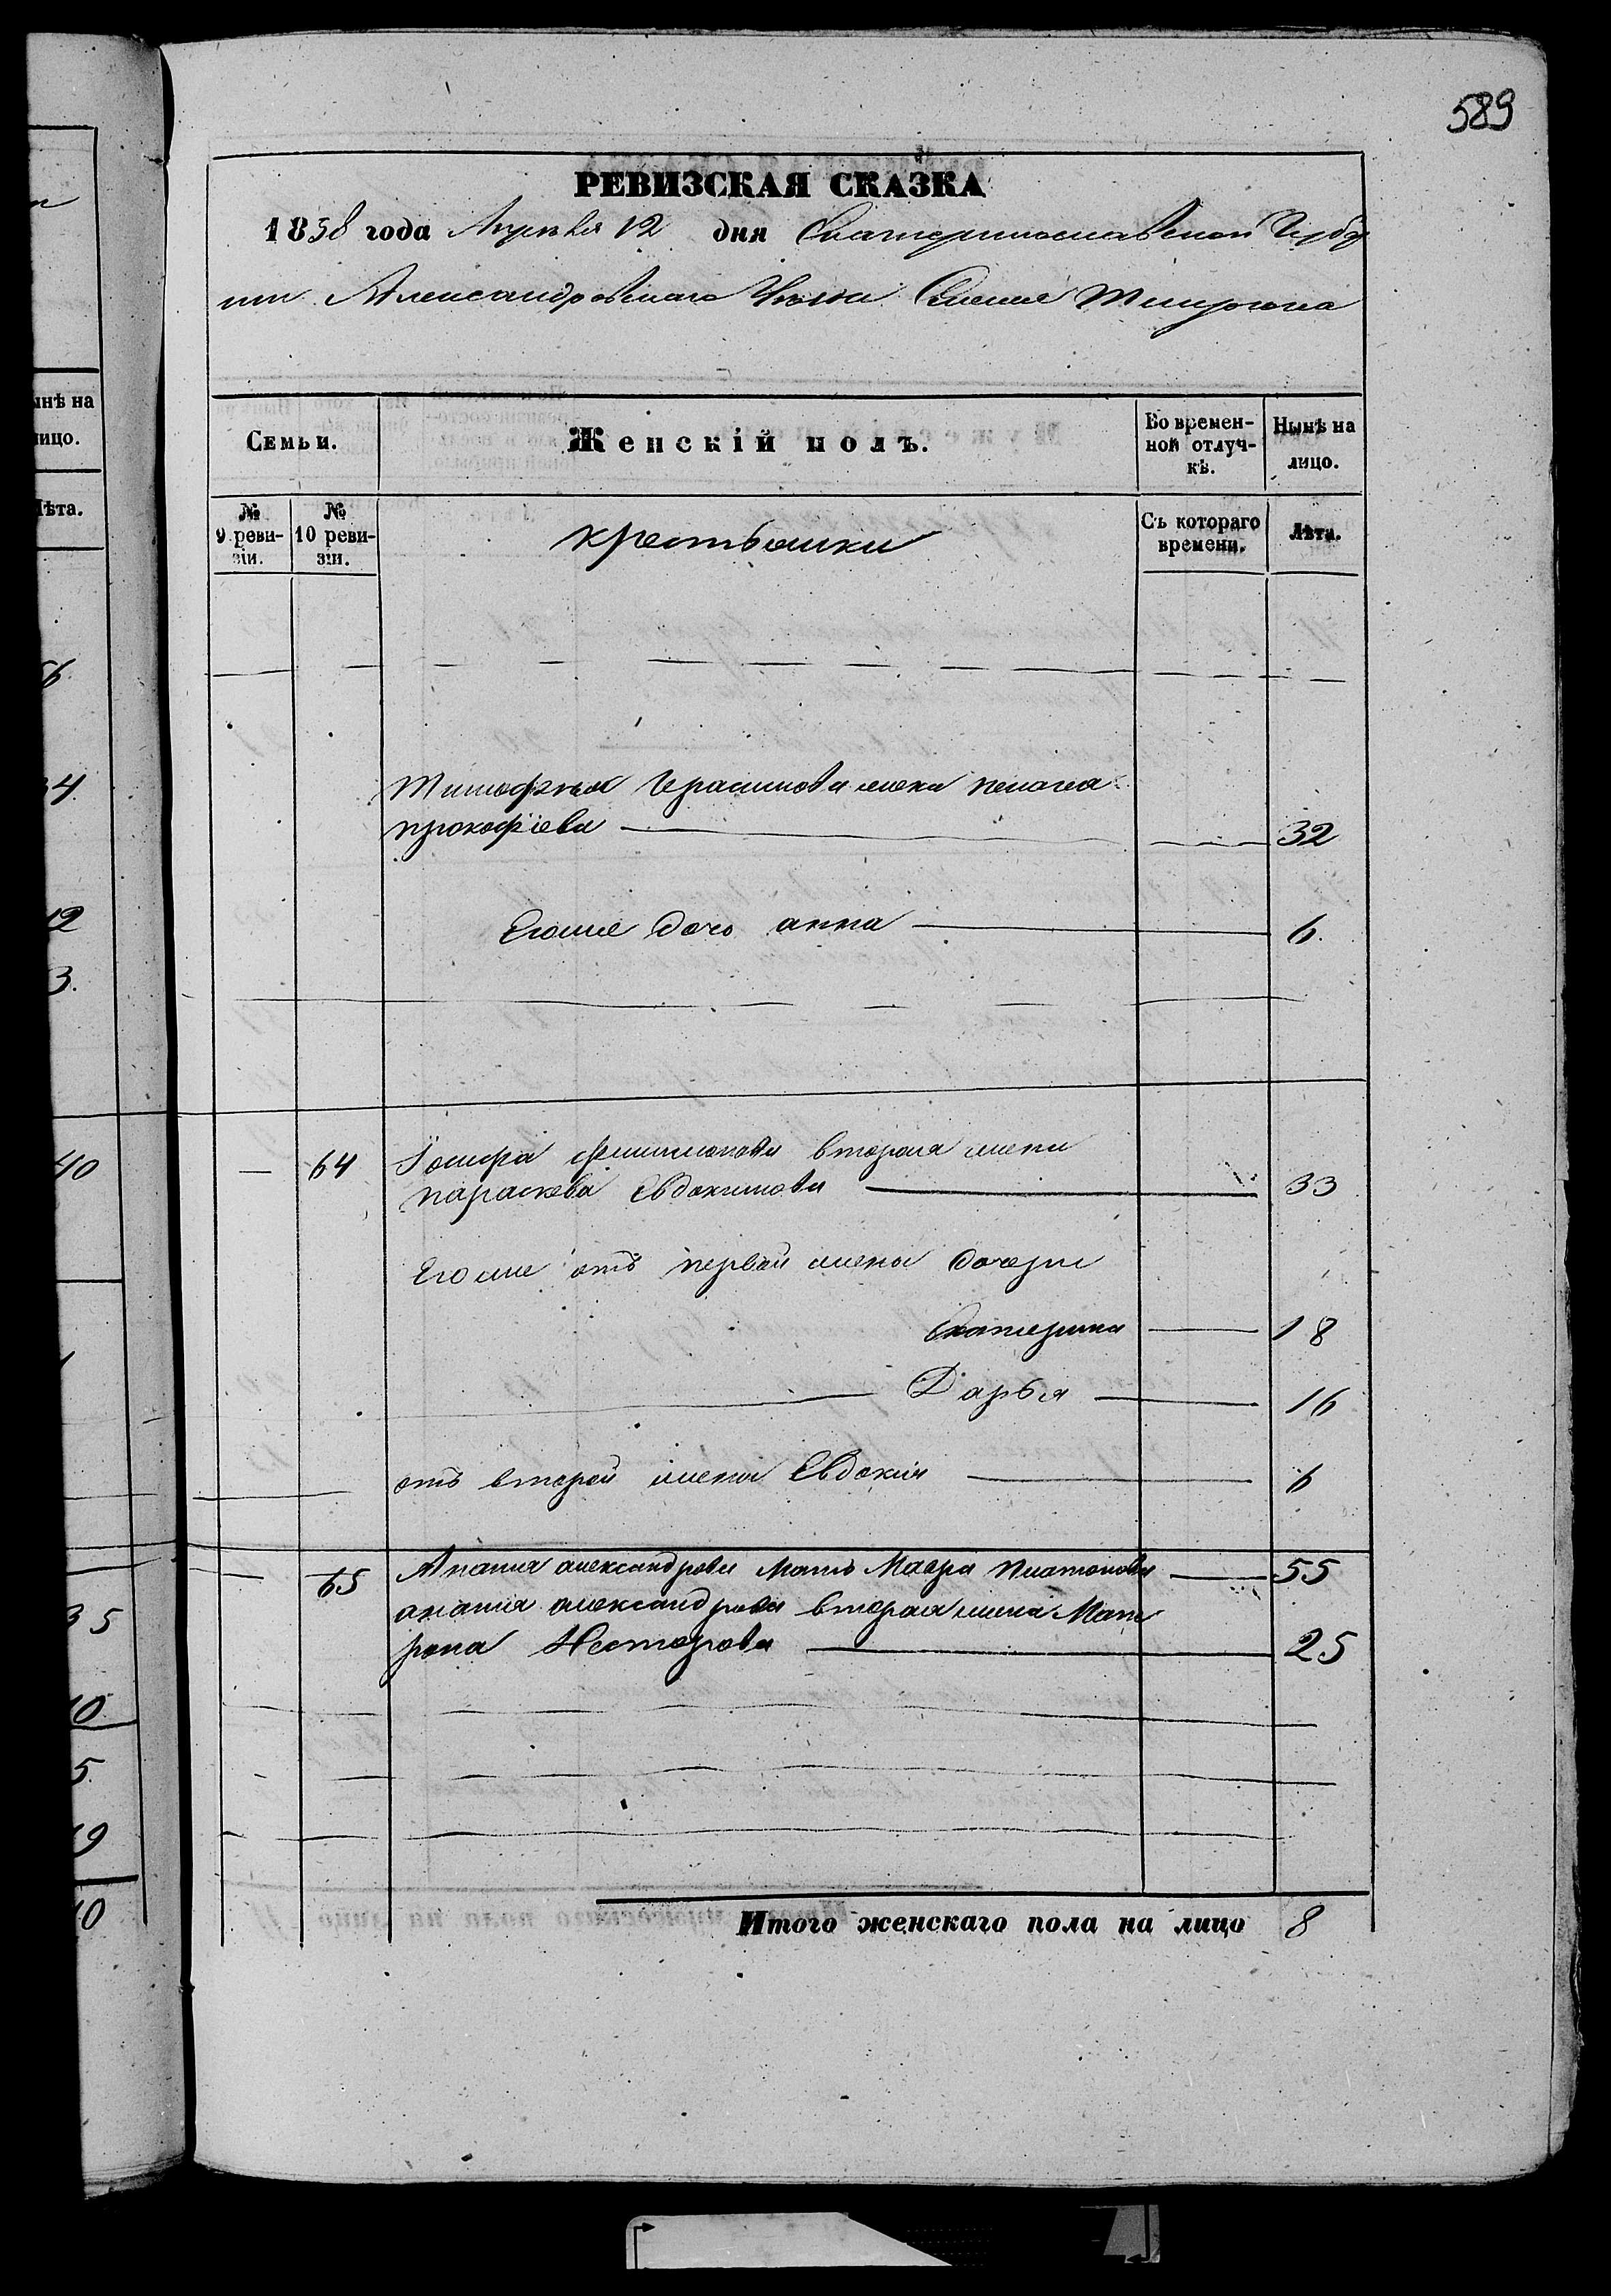 589
РЕВИЗСКАЯ СКАЗКА
1858 года Апреля 12 дня Екатеринославской Губер
нiи Александровскаго Уезда Селенiе
Семьи. Женскiй полъ. Во времен-ной отлуч-кѣ. Нынѣ на лицо.
№ 9 реви-зiи. № 10 реви-зiи. крестьянки Съ котораго времени. Лѣта.
Тимофея Герасимова жена Пелагея
прокофiева 32
Егоже дочь анна 6.
64 Iосифа филимонова вторая жена
параскева Евдокимова 33
Егоже отъ первой жены дочери
Екатерина 18
Дарья 16
отъ второй жены Евдокия 6
65 Анания александрова мать Мавра платонова 55
анания александрова вторая жена Мат
рона Нестерова 25
Итого женскаго пола на лицо 8
ынѣ на
лицо.
Лѣта.
56.
34.
12
3.
40
35
10.
5.
19
10